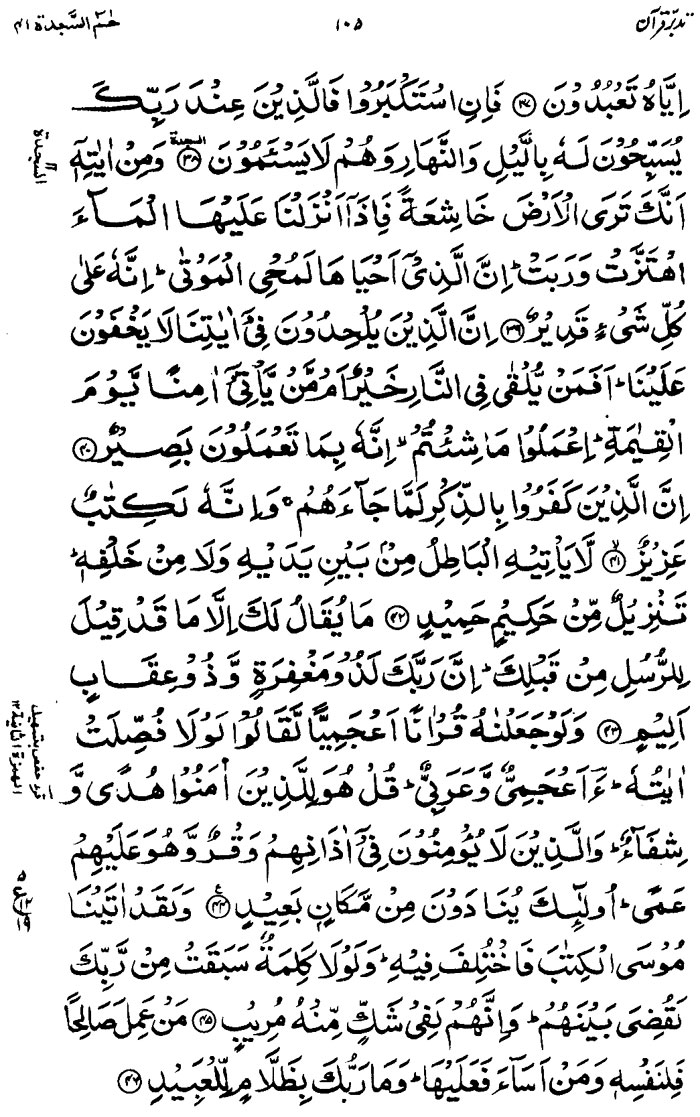 تدبر قرآن ۱۰۵ حٰم السَّجدة ۴۱
اِيَّاهُ تَعْبُدُوْنَ ﴿۳۷﴾ فَاِنِ اسْتَكْبَرُوْا فَالَّذِيْنَ عِنْدَ رَبِّكَ
يُسَبِّحُوْنَ لَهٗ بِالَّيْلِ وَالنَّهَارِ وَهُمْ لَا يَسْـَٔمُوْنَ ﴿۳۸﴾ السجدة وَمِنْ اٰيٰتِهٖٓ
السجدة
اَنَّكَ تَرَى الْاَرْضَ خَاشِعَةً فَاِذَآ اَنْزَلْنَا عَلَيْهَا الْمَآءَ
اهْتَزَّتْ وَرَبَتْ ؕ اِنَّ الَّذِيْٓ اَحْيَاهَا لَمُحْيِ الْمَوْتٰى ؕ اِنَّهٗ عَلٰى
كُلِّ شَيْءٍ قَدِيْرٌ ﴿۳۹﴾ اِنَّ الَّذِيْنَ يُلْحِدُوْنَ فِيْٓ اٰيٰتِنَا لَا يَخْفَوْنَ
عَلَيْنَا ؕ اَفَمَنْ يُّلْقٰى فِي النَّارِ خَيْرٌ اَمْ مَّنْ يَّاْتِيْٓ اٰمِنًا يَّوْمَ
الْقِيٰمَةِ ؕ اِعْمَلُوْا مَا شِئْتُمْ ؕ اِنَّهٗ بِمَا تَعْمَلُوْنَ بَصِيْرٌ ﴿۴۰﴾
اِنَّ الَّذِيْنَ كَفَرُوْا بِالذِّكْرِ لَمَّا جَآءَهُمْ ۚ وَاِنَّهٗ لَكِتٰبٌ
عَزِيْزٌ ﴿۴۱﴾ لَّا يَاْتِيْهِ الْبَاطِلُ مِنْۢ بَيْنِ يَدَيْهِ وَلَا مِنْ خَلْفِهٖ ؕ
تَنْزِيْلٌ مِّنْ حَكِيْمٍ حَمِيْدٍ ﴿۴۲﴾ مَا يُقَالُ لَكَ اِلَّا مَا قَدْ قِيْلَ
لِلرُّسُلِ مِنْ قَبْلِكَ ؕ اِنَّ رَبَّكَ لَذُوْ مَغْفِرَةٍ وَّذُوْ عِقَابٍ
اَلِيْمٍ ﴿۴۳﴾ وَلَوْ جَعَلْنٰهُ قُرْاٰنًا اَعْجَمِيًّا لَّقَالُوْا لَوْلَا فُصِّلَتْ
اٰيٰتُهٗ ؕ ءَاَعْجَمِيٌّ وَّعَرَبِيٌّ ؕ قُلْ هُوَ لِلَّذِيْنَ اٰمَنُوْا هُدًى وَّ
قرأ حفص بتسهيل
الهمزة الثانية ۱۲
شِفَآءٌ ؕ وَالَّذِيْنَ لَا يُؤْمِنُوْنَ فِيْٓ اٰذَانِهِمْ وَقْرٌ وَّهُوَ عَلَيْهِمْ
عَمًى ؕ اُولٰٓئِكَ يُنَادَوْنَ مِنْ مَّكَانٍۢ بَعِيْدٍ ﴿۴۴﴾ وَلَقَدْ اٰتَيْنَا
مُوْسَى الْكِتٰبَ فَاخْتُلِفَ فِيْهِ ؕ وَلَوْلَا كَلِمَةٌ سَبَقَتْ مِنْ رَّبِّكَ
لَقُضِيَ بَيْنَهُمْ ؕ وَاِنَّهُمْ لَفِيْ شَكٍّ مِّنْهُ مُرِيْبٍ ﴿۴۵﴾ مَنْ عَمِلَ صَالِحًا
فَلِنَفْسِهٖ وَمَنْ اَسَآءَ فَعَلَيْهَا ؕ وَمَا رَبُّكَ بِظَلَّامٍ لِّلْعَبِيْدِ ﴿۴۶﴾